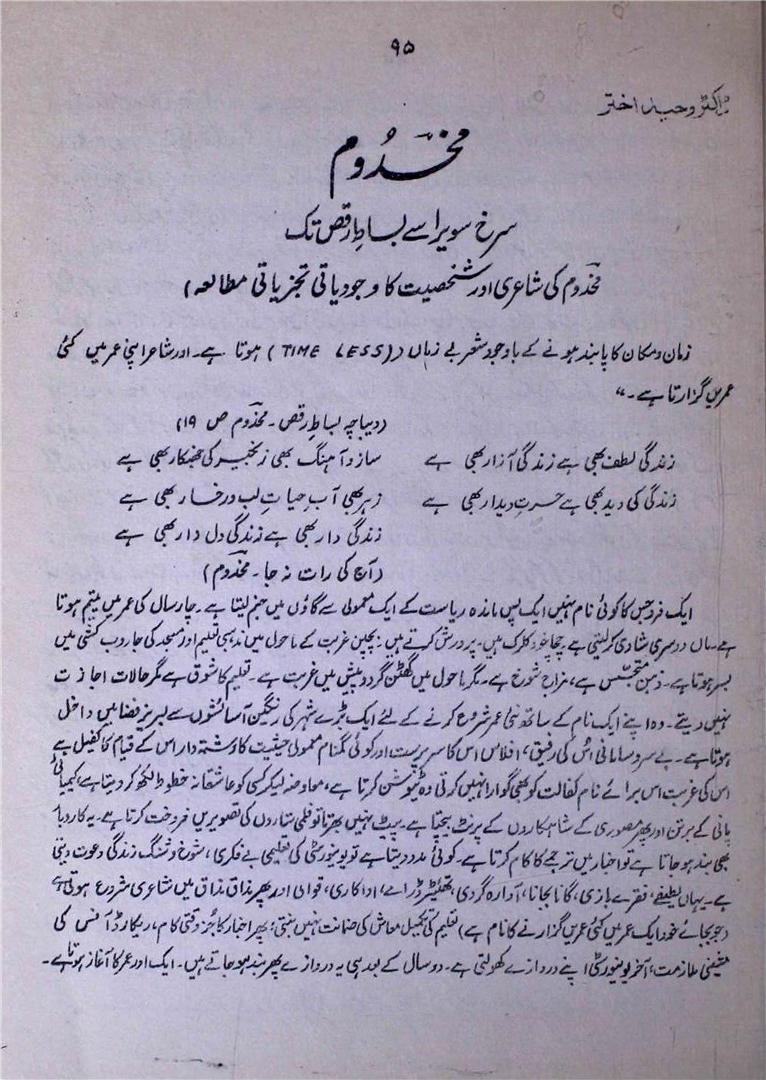 ۹۵
ڈاکٹر وحید اختر
مخدوم
سرخ سویرا سے بساطِ رقص تک
مخدوم کی شاعری اور شخصیت کا وجودیاتی تجزیاتی مطالعہ)
زمان و مکان کا پابند ہونے کے باوجود شعر بے زماں ((TIME LESS) ہوتا ہے۔ اور شاعر اپنی عمر میں کئی
عمریں گزارتا ہے۔“
(دیباچہ بساطِ رقص۔ مخدوم ص ۱۹)
زندگی لطف بھی ہے زندگی آزار بھی ہے ساز و آہنگ بھی زنجیر کی جھنکار بھی ہے
زندگی کی دید بھی ہے حسرتِ دیدار بھی ہے زہر بھی آبِ حیاتِ لب و رخسار بھی ہے
زندگی دار بھی ہے زندگی دل دار بھی ہے
(آج کی رات نہ جا۔ مخدوم)
ایک فرد جس کا کوئی نام نہیں ایک پس ماندہ ریاست کے ایک معمولی سے گاؤں میں جنم لیتا ہے۔ چار سال کی عمر میں یتیم ہوتا
ہے۔ ماں دوسری شادی کر لیتی ہے۔ چچا جو خود کلرک ہیں۔ پرورش کرتے ہیں؛ بچپن غربت کے ماحول میں مذہبی تعلیم اور مسجد کی جاروب کشی میں
بسر ہوتا ہے۔ ذہن متجسّس ہے، مزاج شوخ ہے۔ مگر ماحول میں گھٹن گرد و پیش میں غربت ہے۔ تعلیم کا شوق ہے مگر حالات اجازت
نہیں دیتے۔ وہ اپنے ایک نام کے ساتھ نئی عمر شروع کرنے کے لئے ایک بڑے شہر کی رنگین آسائشوں سے لبریز فضا میں داخل
ہوتا ہے۔ بے سروسامانی اُس کی رفیق، افلاس اس کا سرپرست اور کوئی گمنام معمولی حیثیت کا رشتہ دار اس کے قیام کا کفیل ہے
اس کی غربت اس برائے نام کفالت کو بھی گوارا نہیں کرتی وہ ٹیوشن کرتا ہے، معاوضہ لیکر کسی کو عاشقانہ خطوط لکھ کر دیتا ہے، کیمیائی
پانی کے برتن اور پھر مصوری کے شاہکاروں کے پرنٹ بیچتا ہے۔ پیٹ نہیں بھرتا تو فلمی ستاروں کی تصویریں فروخت کرتا ہے۔ یہ کاروبار
بھی بند ہو جاتا ہے تو اخبار میں ترجمے کا کام کرتا ہے۔ کوئی مدد دیتا ہے تو یونیورسٹی کی تعلیمی بے فکری، شوخ و شنگ زندگی دعوت دیتی
ہے۔ یہاں لطیفے، فقرے بازی، گانا بجانا، آوارہ گردی، تھیٹر ڈرامے، اداکاری، قوالی اور پھر مذاق مذاق میں شاعری شروع ہوتی ہے
(جو بجائے خود ایک عمر میں کئی عمریں گزارنے کا نام ہے) تعلیم کی تکمیل معاش کی ضمانت نہیں بنتی؛ پھر اخبار کا جز وقتی کام، ریکارڈ آفس کی
مشینی ملازمت، آخر یونیورسٹی اپنے دروازے کھولتی ہے۔ دو سال کے بعد ہی یہ دروازے پھر بند ہو جاتے ہیں۔ ایک اور عمر کا آغاز ہوتا ہے۔